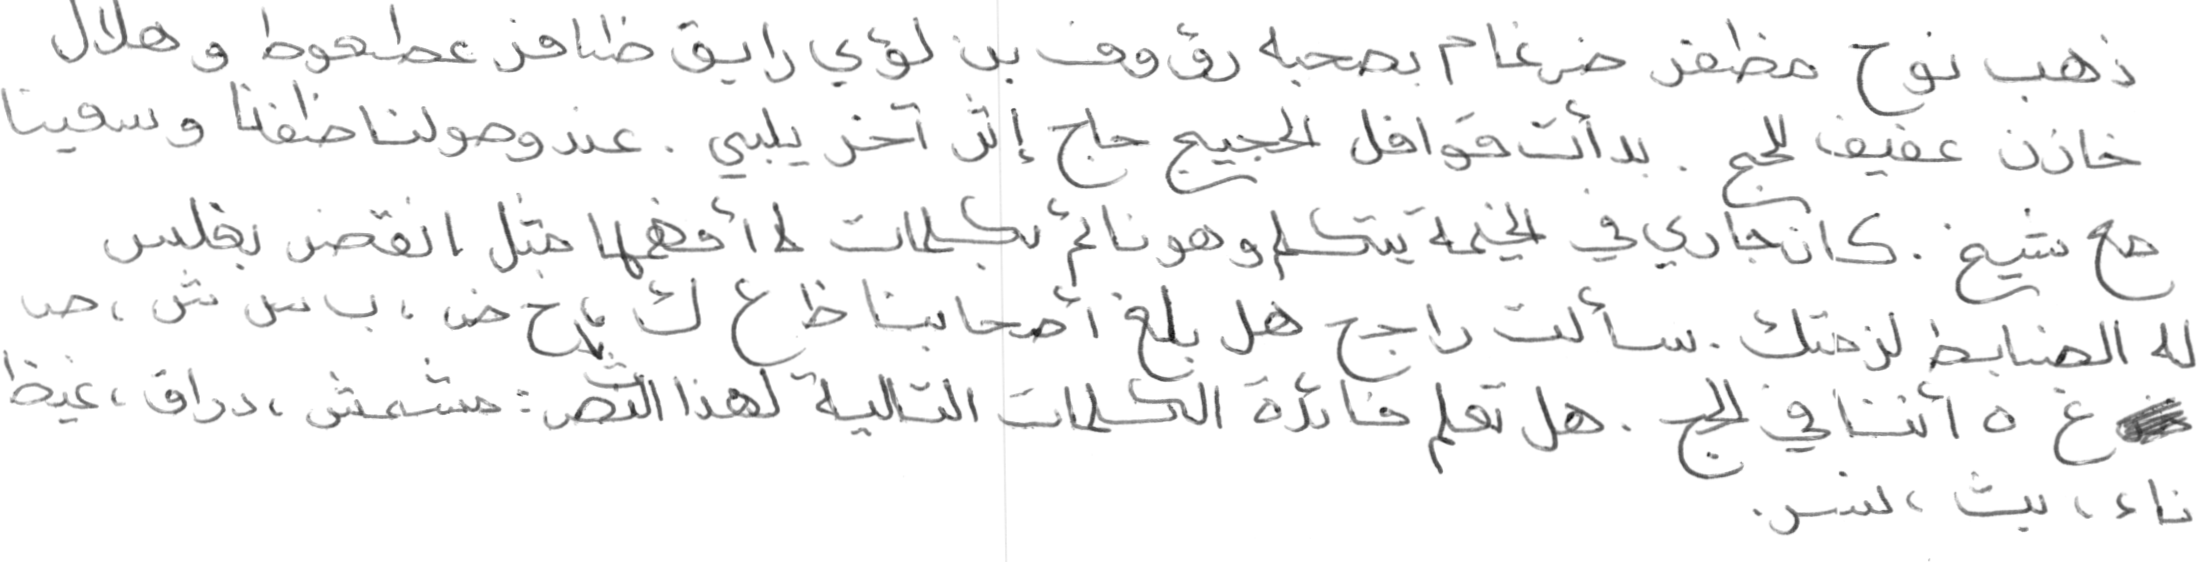 ذهب نوح مظفر ضرغام بصحبه رؤوف بن لؤي رايق ظافر عطعوط و هلال
خازن عفيف للحج . بدأت قوافل الحجيج حاج إثر آخر يلبي . عند وصولنا طفنا وسعينا
مع شيخ . كان جاري في الخيمة يتكلم وهو نائم بكلمات لا أفهمها مثل انقض بغلس
له الضابط لزمتك . سألت راجح هل بلغ أصحابنا ظ غ ك خ ض ، ب س ش ، ص
غ ه أننا في الحج . هل تعلم فائدة الكلمات التالية لهذا النص : مشمش ، دراق ، غيظ
ناء ، بيث ، لنسر .